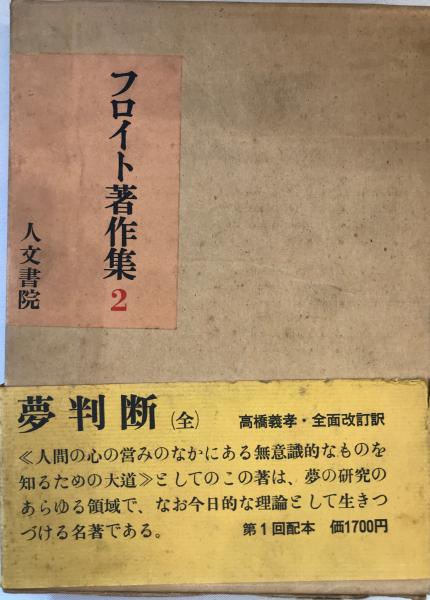 フロイト著作集2
人文書院
夢判断(全) 高橋義孝・全面改訂訳
≪人間の心の営みのなかにある無意識的なものを
知るための大道≫としてのこの著は、夢の研究の
あらゆる領域で、なお今日的な理論として生きつ
づける名著である。 第1回配本 価1700円